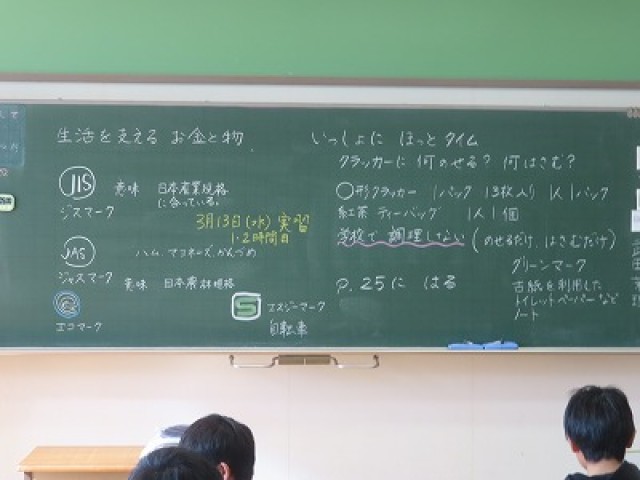 生活を支える お金と物
JIS
ジスマーク
意味 日本産業規格
に合っている。
3月13日(水) 実習
1・2時間目
JAS
ジャスマーク
ハム、マヨネーズ、かんづめ
意味 日本農林規格
エコマーク
S
エスジーマーク
自転車
いっしょに ほっとタイム
クラッカーに 何のせる? 何はさむ?
○形クラッカー 1パック(3枚入り) 1人1パック
紅茶 ティーバッグ 1人1個
学校で調理しない (のせるだけ、はさむだけ)
P.25に はる
グリーンマーク
古紙を利用した
トイレットペーパーなど
ノート